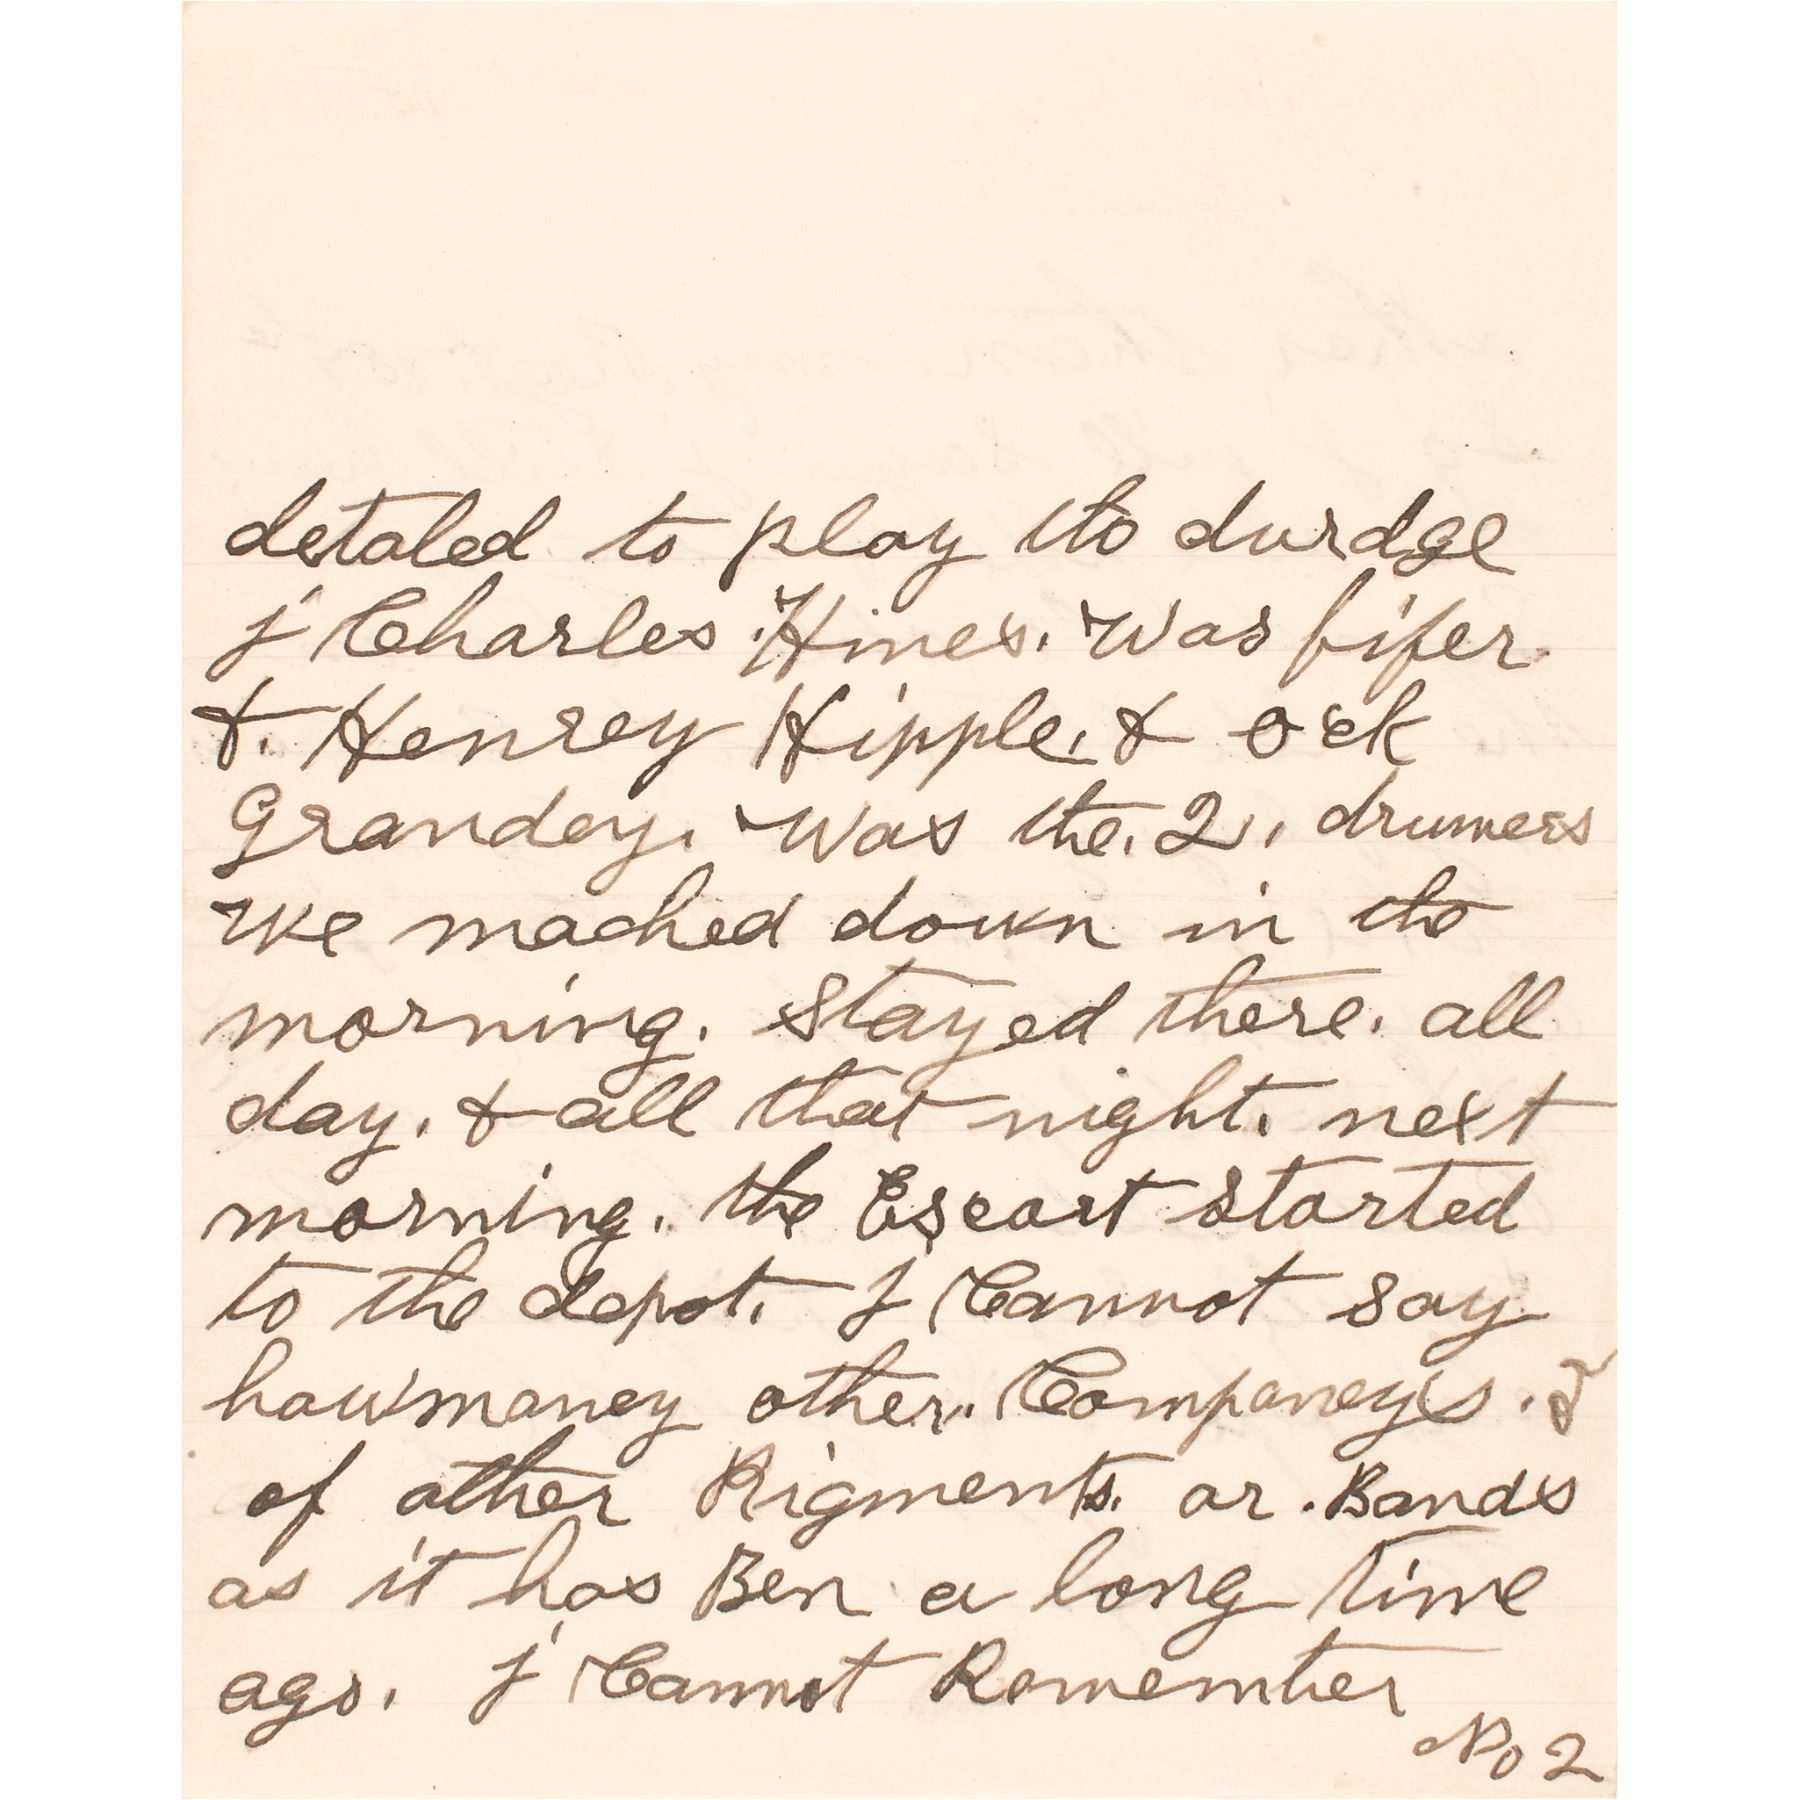 detaled to play the durdge
I Charles Hines. Was fifer.
&. Henrey Hipple, & ock
Grandey. Was the. 2. drumers
We mached down in the
morning. Stayed there. all
day. & all that night. next
morning. the Escort started
to the depot. I Cannot say
howmaney other. Companeys. &
of other Rigments. or. Bands
as it has Ben a long time
ago. I Cannot Remember
No 2